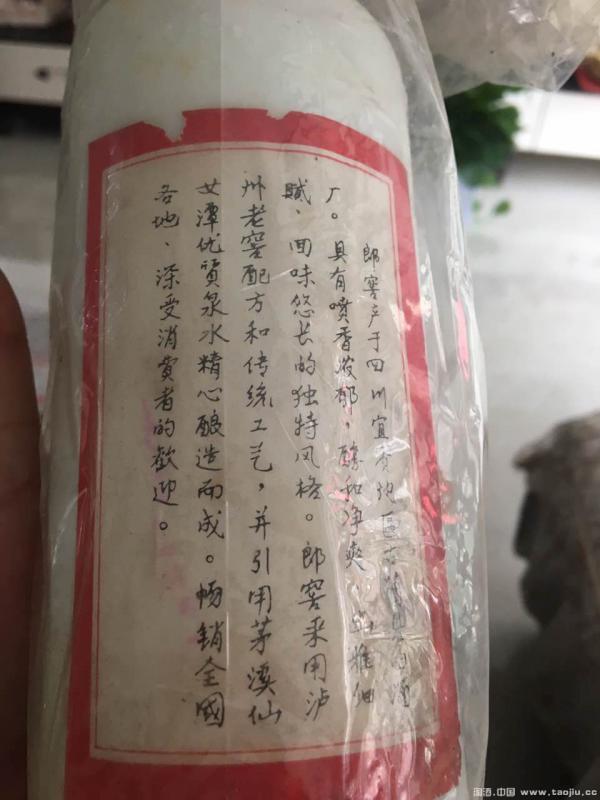 郎窖产于四川宜宾地區古蔺酒
厂。具有喷香浓郁，醇和净爽、雅细
腻、回味悠长的独特风格。郎窖采用泸
州老窖配方和传统工艺，并引用茅溪仙
女潭优質泉水精心酿造而成。畅销全國
各地、深受消費者的歡迎。
淘酒.中国 www.taojiu.cc